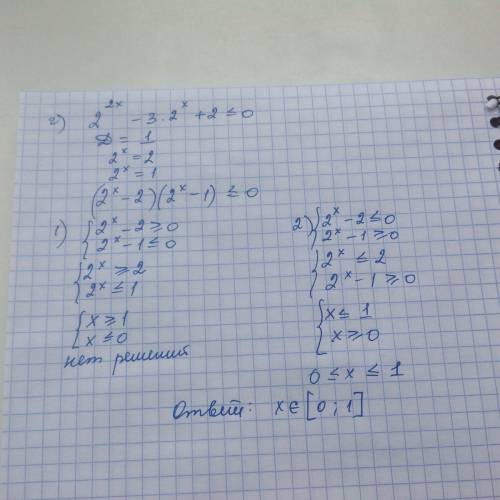 г) 2^{2x} - 3 · 2^x + 2 ≤ 0
D = 1
2^x = 2
2^x = 1
(2^x - 2)(2^x - 1) ≤ 0
1) { 2^x - 2 ≥ 0
2^x - 1 ≤ 0
{ 2^x ≥ 2
2^x ≤ 1
{ x ≥ 1
x ≤ 0
нет решений
2) { 2^x - 2 ≤ 0
2^x - 1 ≥ 0
{ 2^x ≤ 2
2^x - 1 ≥ 0
{ x ≤ 1
x ≥ 0
0 ≤ x ≤ 1
Ответ: x ∈ [0 ; 1]